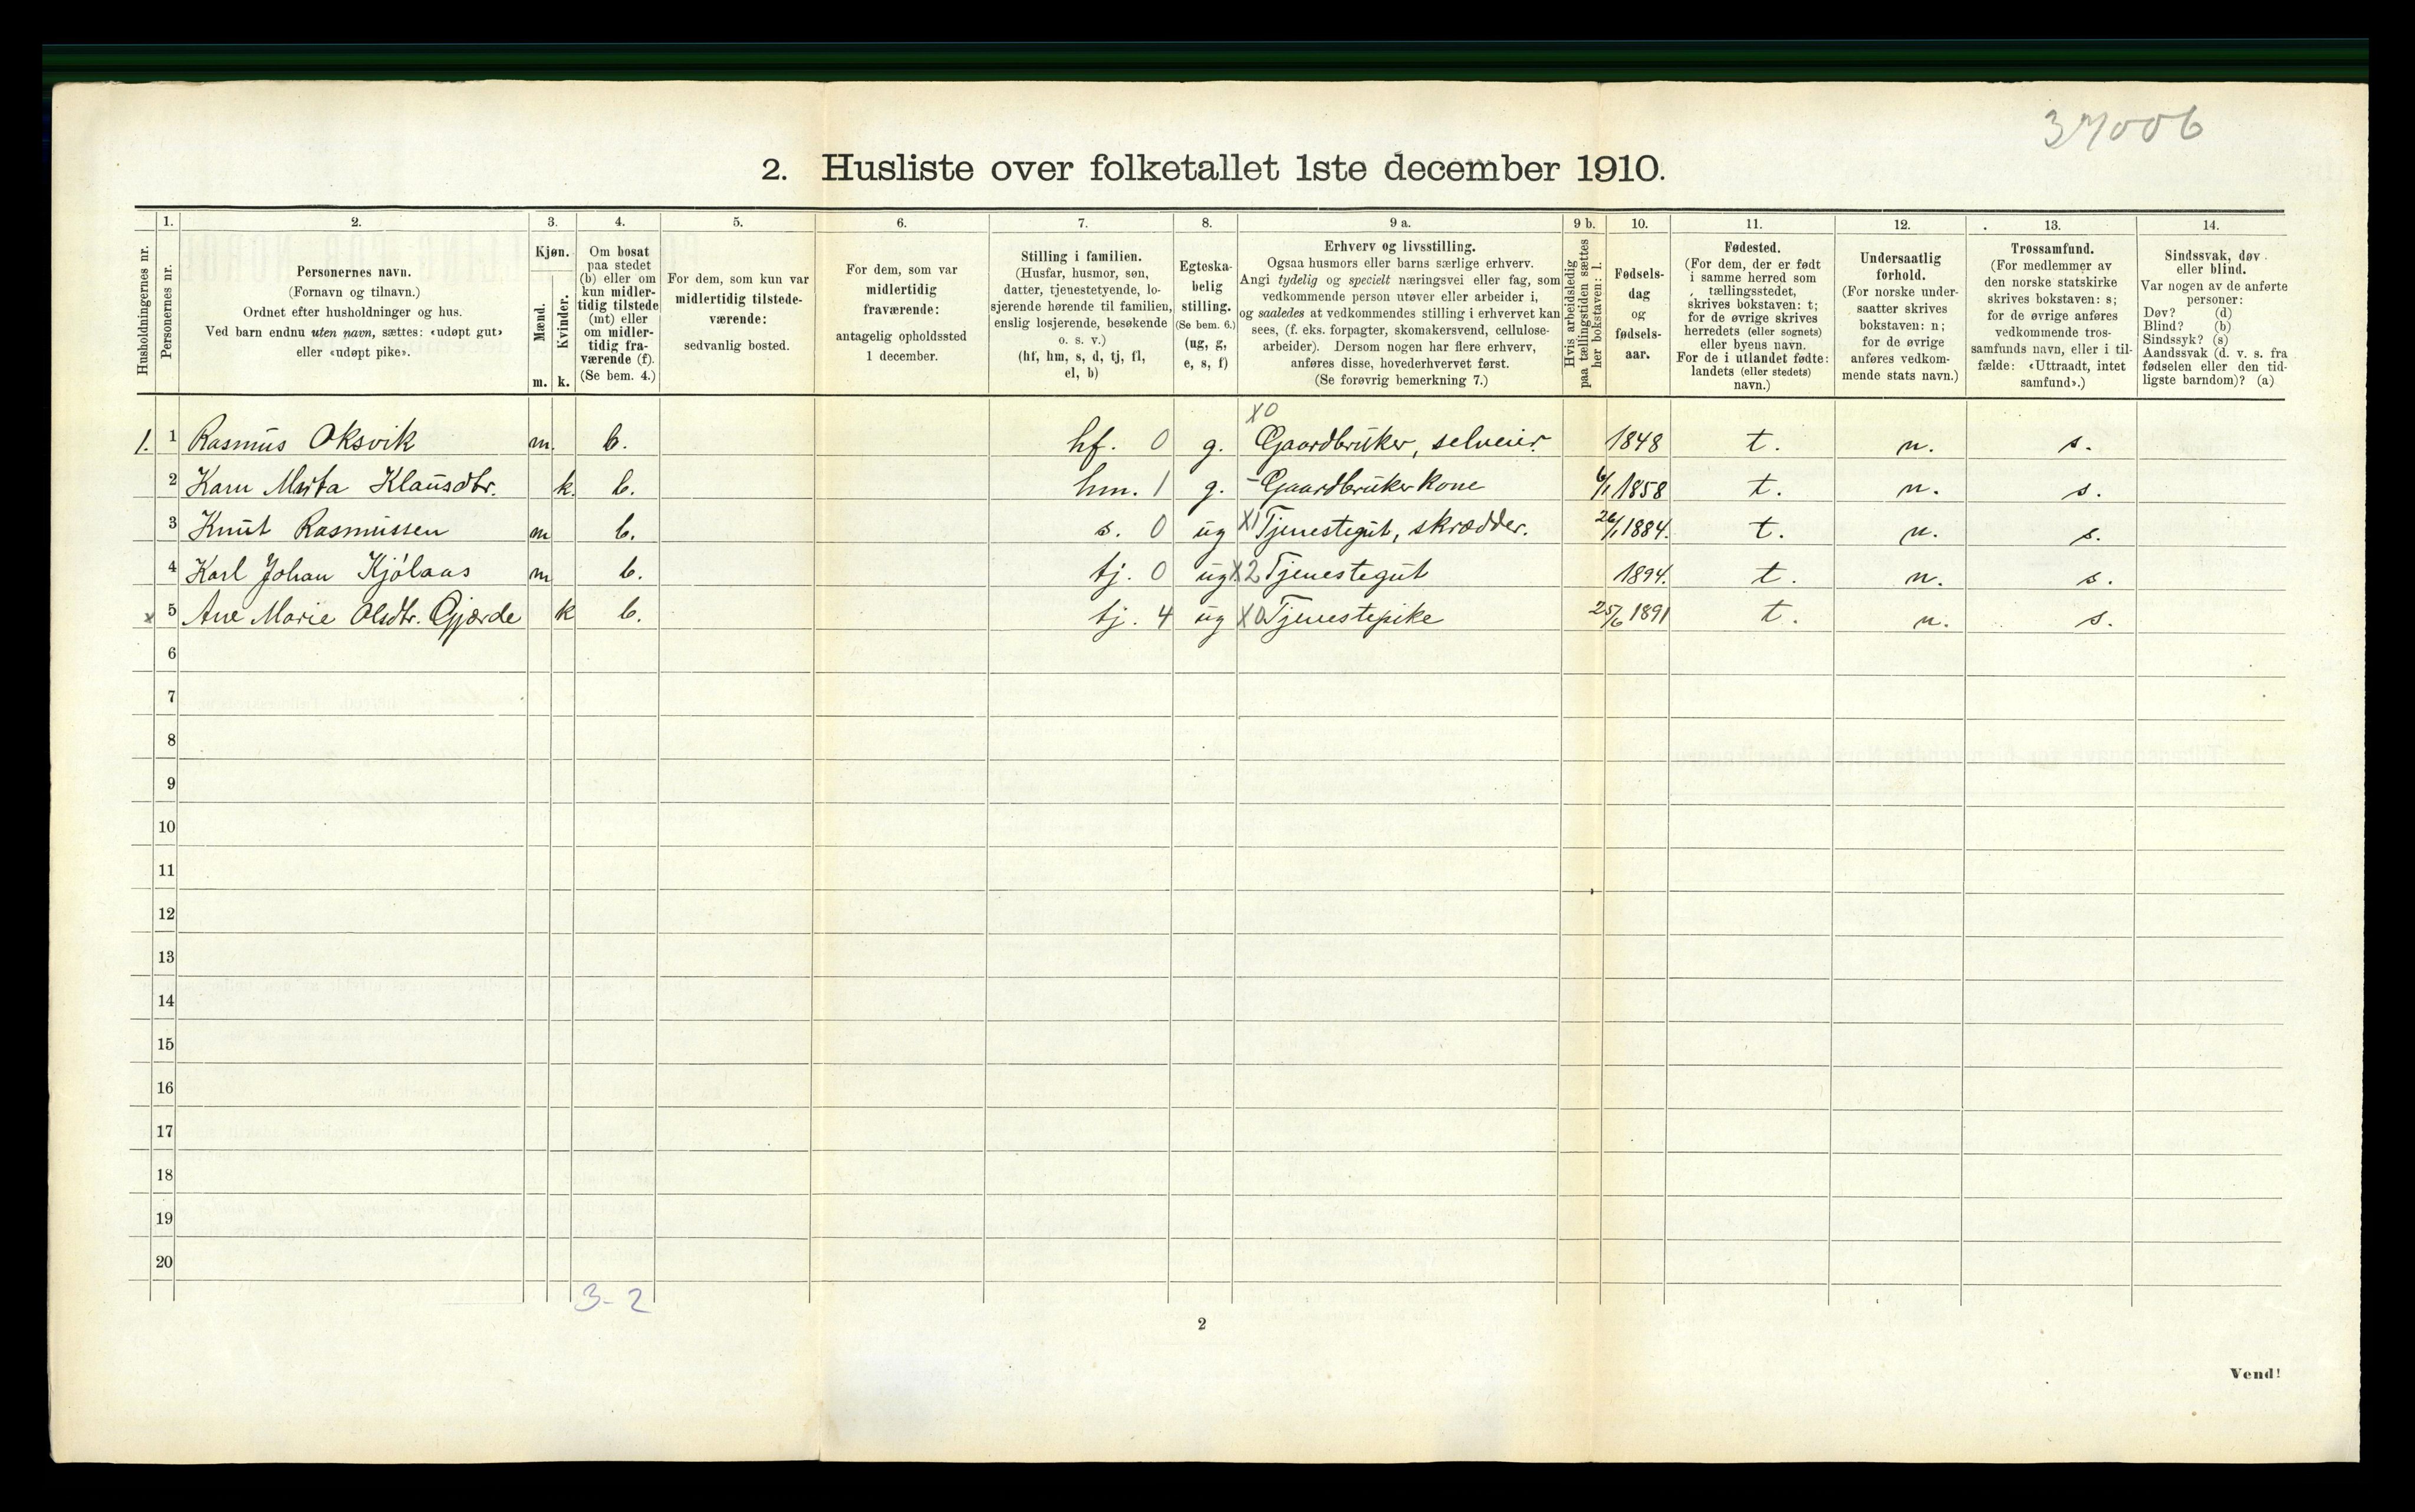 37006
2. Husliste over folketallet 1ste december 1910.
Husholdningernes nr.
1.
Personernes nr.
2.
Personernes navn.
(Fornavn og tilnavn.)
Ordnet efter husholdninger og hus.
Ved barn endnu uten navn, sættes: «udøpt gut»
eller «udøpt pike».
3.
Kjøn.
Mænd.
Kvinder.
m. k.
4.
Om bosat
paa stedet
(b) eller om
kun midler-
tidig tilstede
(mt) eller
om midler-
tidig fra-
værende (f).
(Se bem. 4.)
5.
For dem, som kun var
midlertidig tilstede-
værende:
sedvanlig bosted.
6.
For dem, som var
midlertidig
fraværende:
antagelig opholdssted
1 december.
7.
Stilling i familien.
(Husfar, husmor, søn,
datter, tjenestetyende, lo-
sjerende hørende til familien,
enslig losjerende, besøkende
o. s. v.)
(hf, hm, s, d, tj, fl,
el, b)
8.
Egteska-
belig
stilling.
(Se bem. 6.)
(ug, g,
e, s, f)
9 a.
Erhverv og livsstilling.
Ogsaa husmors eller barns særlige erhverv.
Angi tydelig og specielt næringsvei eller fag, som
vedkommende person utøver eller arbeider i,
og saaledes at vedkommendes stilling i erhvervet kan
sees, (f. eks. forpagter, skomakersvend, cellulose-
arbeider). Dersom nogen har flere erhverv,
anføres disse, hovederhvervet først.
(Se forøvrig bemerkning 7.)
9 b.
Hvis arbeidsledig
paa tællingstiden sættes
her bokstaven: l.
10.
Fødsels-
dag
og
fødsels-
aar.
11.
Fødested.
(For dem, der er født
i samme herred som
tællingsstedet,
skrives bokstaven: t;
for de øvrige skrives
herredets (eller sognets)
eller byens navn.
For de i utlandet fødte:
landets (eller stedets)
navn.)
12.
Undersaatlig
forhold.
(For norske under-
saatter skrives
bokstaven: n;
for de øvrige
anføres vedkom-
mende stats navn.)
13.
Trossamfund.
(For medlemmer av
den norske statskirke
skrives bokstaven: s;
for de øvrige anføres
vedkommende tros-
samfunds navn, eller i til-
fælde: «Uttraadt, intet
samfund».)
14.
Sindssvak, døv
eller blind.
Var nogen av de anførte
personer:
Døv? (d)
Blind? (b)
Sindssyk? (s)
Aandssvak (d. v. s. fra
fødselen eller den tid-
ligste barndom)? (a)
X0
1. 1 Rasmus Oksvik m. b. hf. 0 g. Gaardbruker, selveier. 1848 t. n. s.
2 Karn Klausdtr. k. b. hm. 1 g. - Gaardbrukerkone 6/1 1858 t. n. s.
3 Knut Rasmussen m b. s. 0 ug X1 Tjenestegut, skrædder. 26/1 1884. t. n. s.
4 Karl Johan Kjølaas m b. tj. 0 ug X2 Tjenestegut 1894. t. n. s.
x 5 Ane Marie Olsdtr. Gjærde k b. tj. 4 ug X0 Tjenestepike 25/6 1891 t. n. s.
6
7
8
9
10
11
12
13
14
15
16
17
18
19
20
3-2
2
Vend!